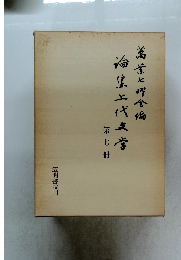 萬葉七曜会編
論集上代文学
第七冊
笠間書院